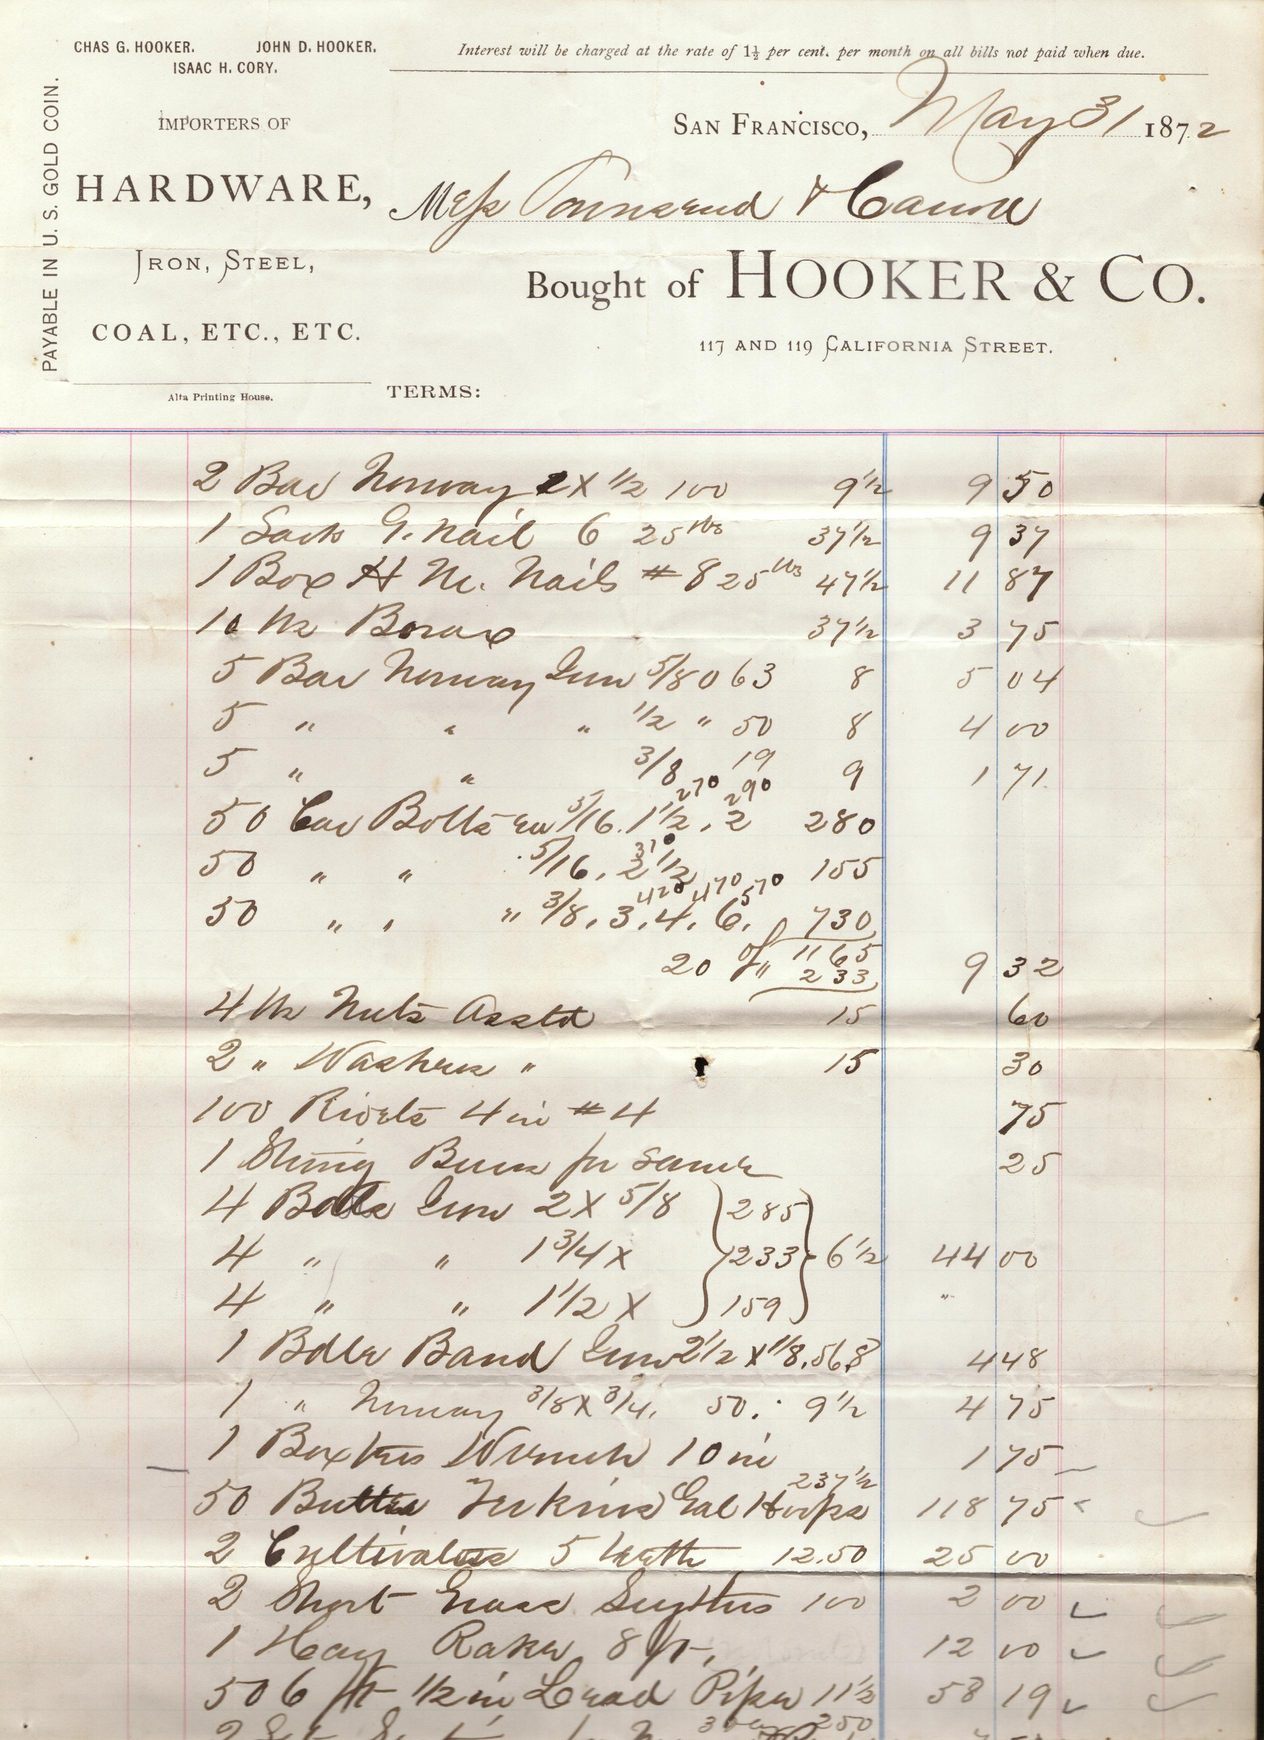 CHAS G. HOOKER. JOHN D. HOOKER.
ISAAC H. CORY.
Interest will be charged at the rate of 1½ per cent. per month on all bills not paid when due.
PAYABLE IN U. S. GOLD COIN.
IMPORTERS OF
HARDWARE,
IRON, STEEL,
COAL, ETC., ETC.
Alta Printing House.
SAN FRANCISCO, May 31 1872
Mess Townsend &
Bought of HOOKER & CO.
117 AND 119 CALIFORNIA STREET.
TERMS:
2 Bar Norway 2 X 1/2 100 9 1/2 9 50
1 Sack G. Nail 6 25 lbs 37 1/2 9 37
1 Box H M. Nails # 8 25 lbs 47 1/2 11 87
10 lbs Borax 37 1/2 3 75
5 Bar Norway Iron 5/8 0 63 8 5 04
5 " " " 1/2 " 50 8 4 00
5 " " 3/8 19 9 1 71
270 290
50 Car Bolts ea 5/16. 1 1/2, 2 280
310
50 " " 5/16. 2 1/2 155
420 470 570
50 " " " 3/8. 3. 4. 6. 730
20 % 1165
" 233 9 32
4 lbs Nuts Asstd 15 60
2 " Washers " 15 30
100 Rivets 4 in # 4 75
1 String Burrs for same 25
4 Bdls Iron 2 X 5/8 285
4 " " 1 3/4 X 233 6 1/2 44 00
4 " " 1 1/2 X 159 "
1 Bdle Band Iron 2 1/2 X 1/8. 56 8 4 48
1 " Norway 3/8 X 3/4. 50. 9 1/2 4 75
1 Wrench 10 in 1 75
237 1/2
50 Butter Firkins Gal Hoops 118 75
2 Cultivators 5 teeth 12.50 25 00
2 Short Grass Scythes 100 2 00
1 Hay Rake 8 ft. 12 00
506 ft 1/2 in Lead Pipe 11 1/2 58 19
250